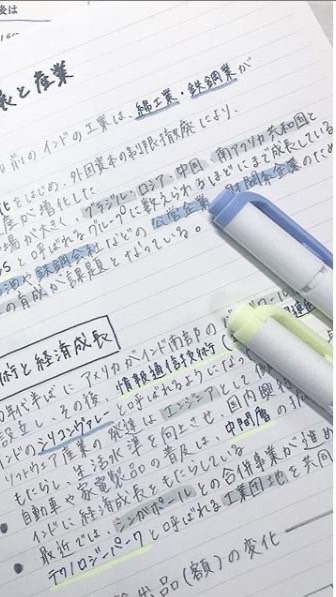 後は
長と産業
前のインドの工業は、綿工業・鉄鋼業が
をはじめ、外国資本の制限撤廃により、
産が増加した
場が大きく、ブラジル・ロシア、中国、南アフリカ共和国と
Sと呼ばれるグループに数えられるほどにまで成長している
鉄鋼会社などの公営企業
の育成が課題となっている。
術と経済成長
年代半ばにアメリカがインド南部の
設立し、その後、情報通信技術(
インドのシリコンヴァレーと呼ばれるようになっ
ソフトウェア産業の発達はエンジニアとして
もたらし、生活水準を向上させ、国内
・自動車や家電製品の普及は、中間層の
インドに経済成長をもたらしている
・最近では、シンガポールとの合併事業が進め
テクノロジーパークと呼ばれる工業団地を共同
品(額)の変化